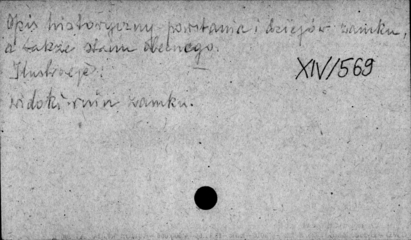 Opis historyczny powstania i dziejów zamku,
a także stanu obecnego.
Ilustracje:
XIV/569
widoki ruin zamku.